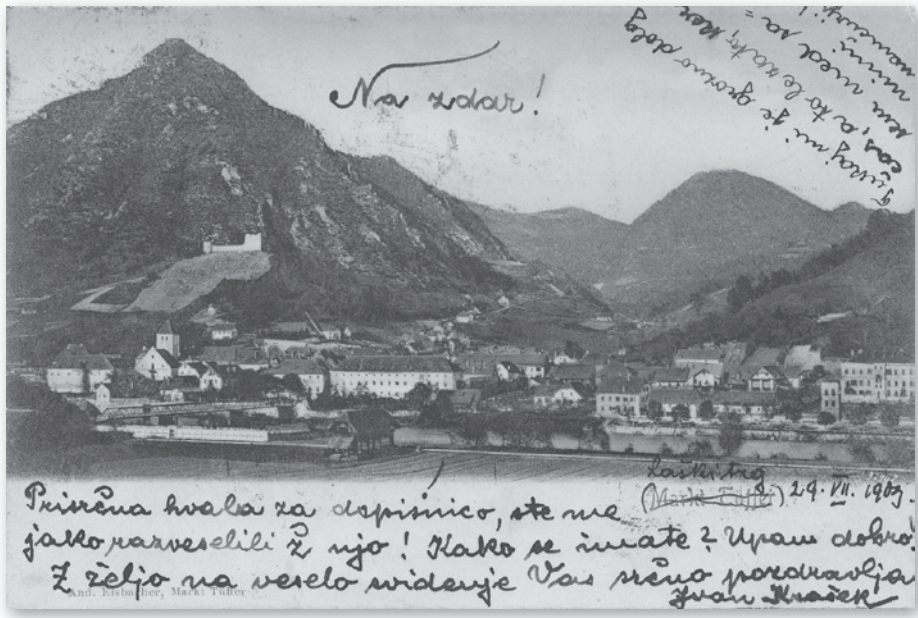 Na zdar!
Tukaj mi je grozno dolg
čas, a to le zato, ker
sem vied sa =
mimi
Laški trg
(Markt Tüffer) 29. VII. 1903.
Prisrčna hvala za dopisnico, ste me
jako razveselili ž njo! Kako se imate? Upam dobro!
Z željo na veselo svidenje Vas srčno pozdravlja
And. Elsbacher, Markt Tüffer.
Ivan Krašek